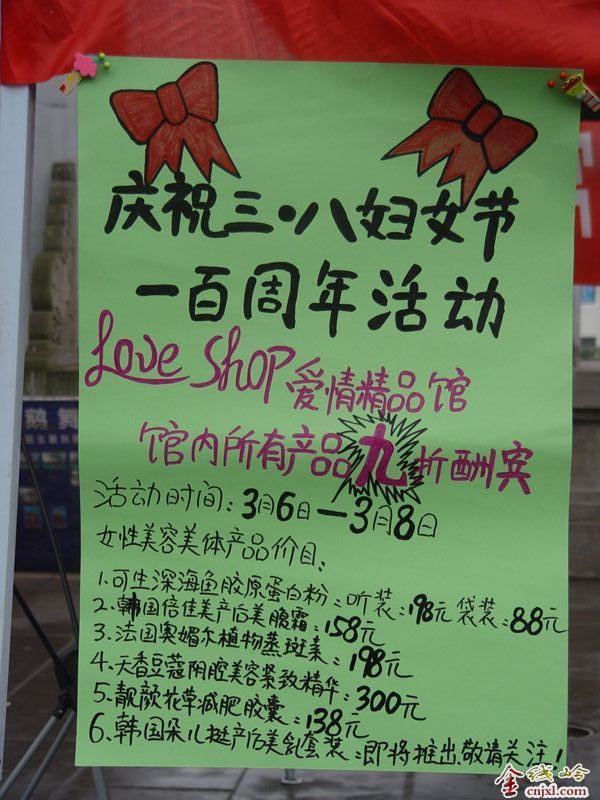 庆祝三·八妇女节
一百周年活动
Love Shop 爱情精品馆
馆内所有产品九折酬宾
活动时间:3月6日—3月8日
女性美容美体产品价目:
1.可生深海鱼胶原蛋白粉:听装:198元 袋装:88元
2.韩国倍佳美产后美腹霜:158元
3.法国奥媚尔植物蒸斑素:198元
4.天香豆蔻阴腔美容紧致精华:300元
5.靓颜花草减肥胶囊:138元
6.韩国朵儿挺产后美乳套装:即将推出,敬请关注!
鹅舞
金线岭
cnjxl.com